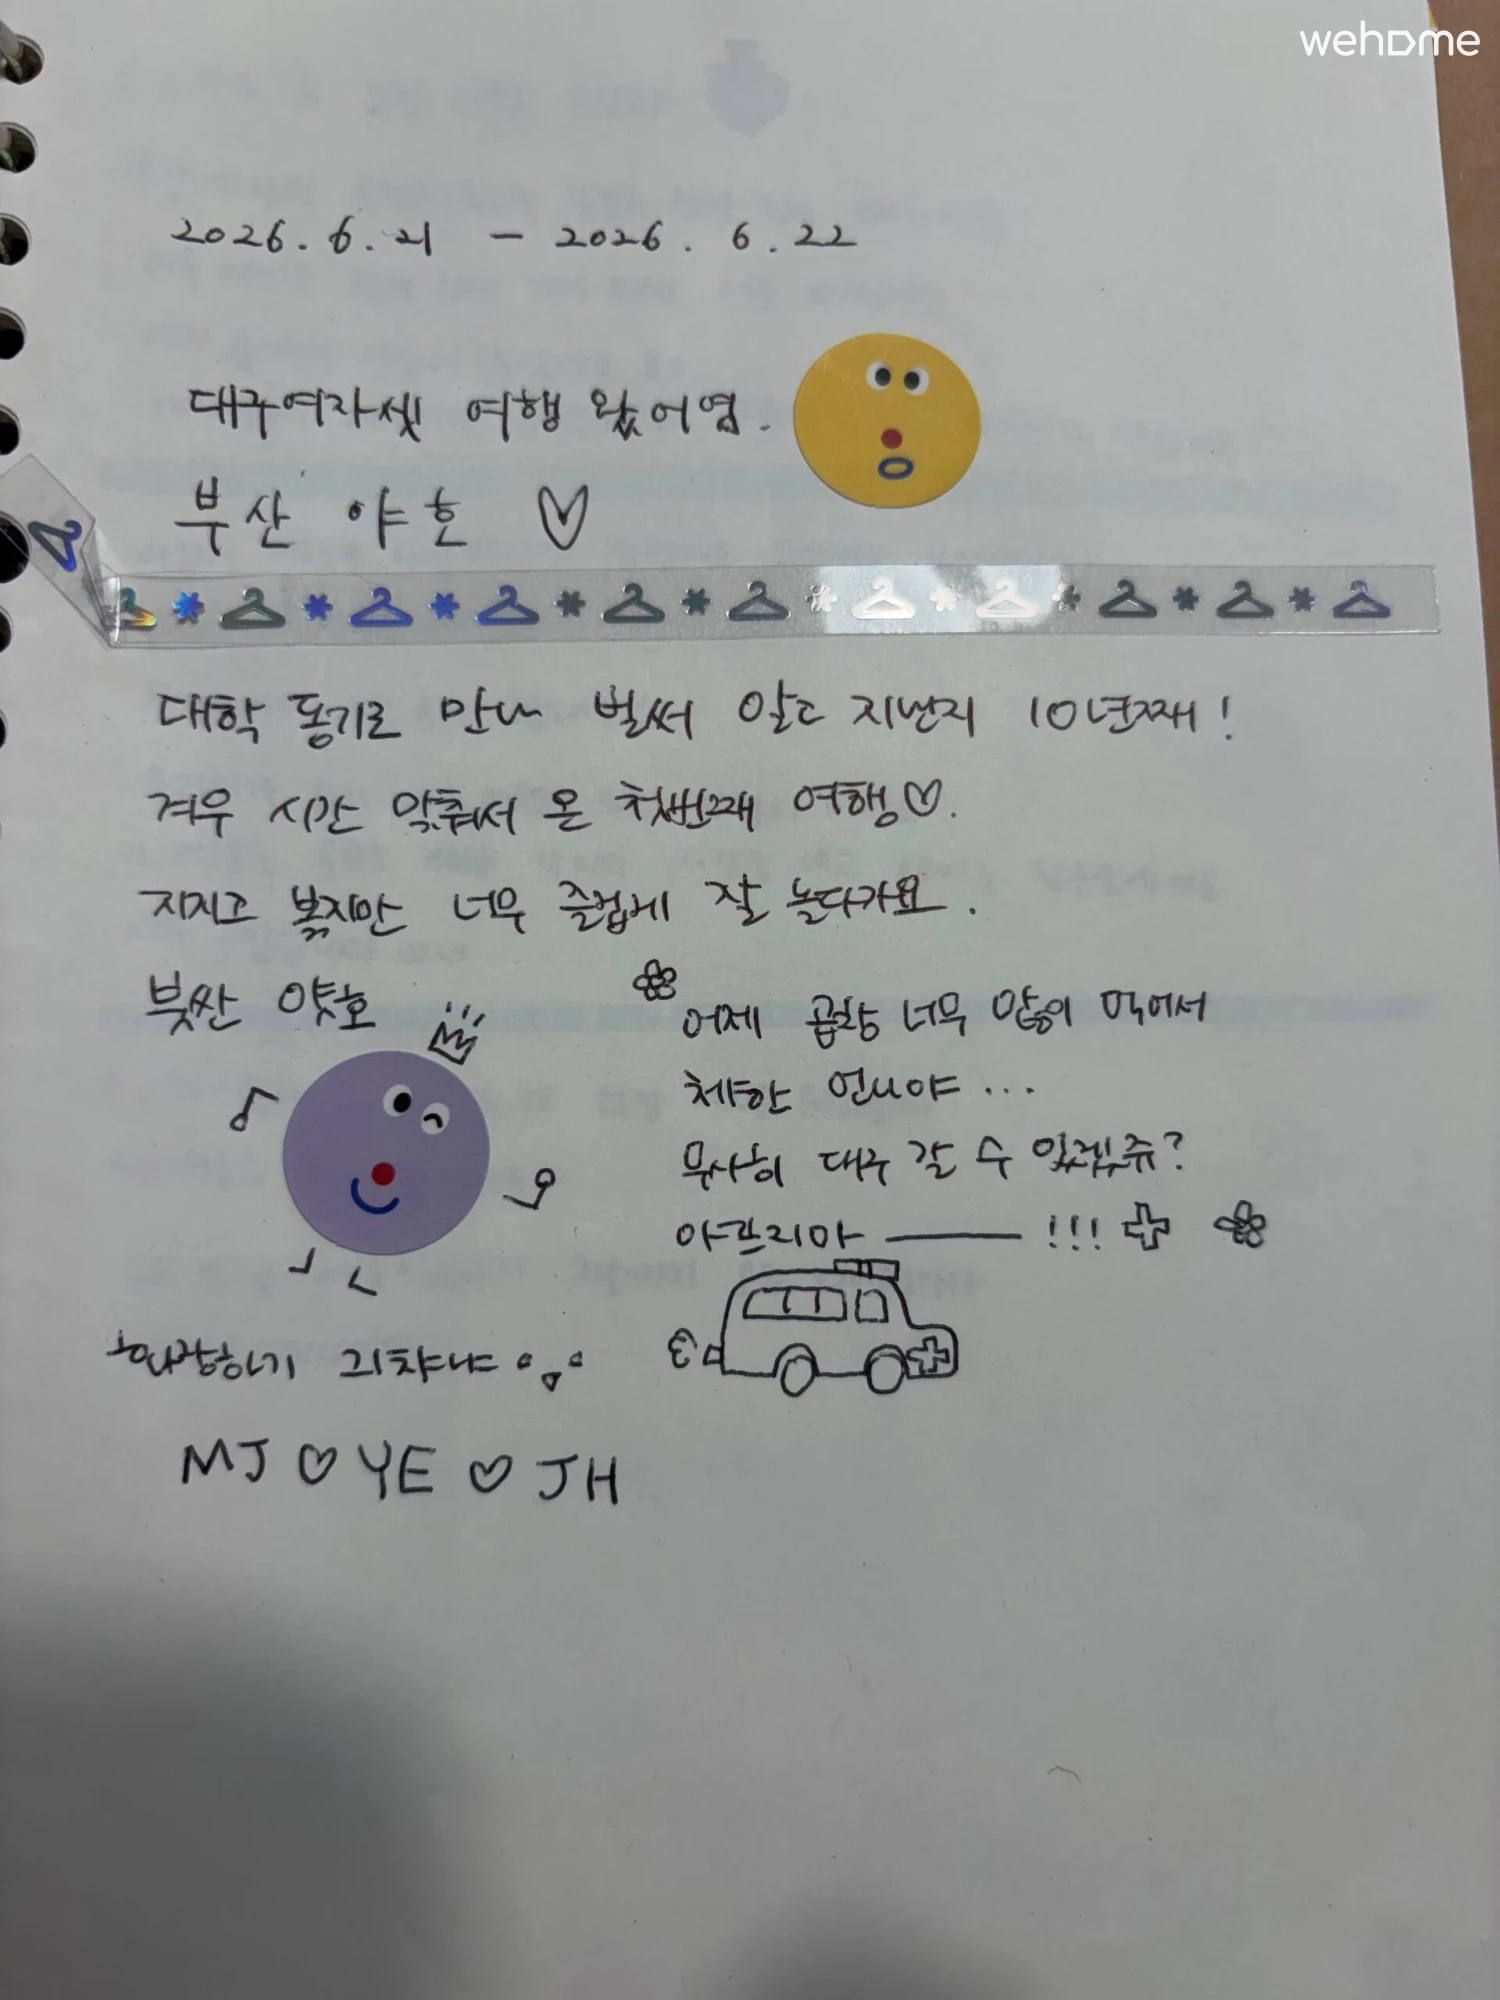 wehome
2026.6.21 - 2026.6.22
대구여자셋 여행 왔어염.
부산 야호 ♡
대학 동기로 만나 벌써 알고 지낸지 10년째!
겨우 시간 맞춰서 온 첫번째 여행♡.
지지고 볶지만 너무 즐겁게 잘 놀다가요.
붓싼 얏호
어제 곱창 너무 많이 먹어서
체한 언니야...
무사히 대구 갈 수 있겠쥬?
아프지마 ——— !!!
화장하기 귀찮냐
MJ ♡ YE ♡ JH